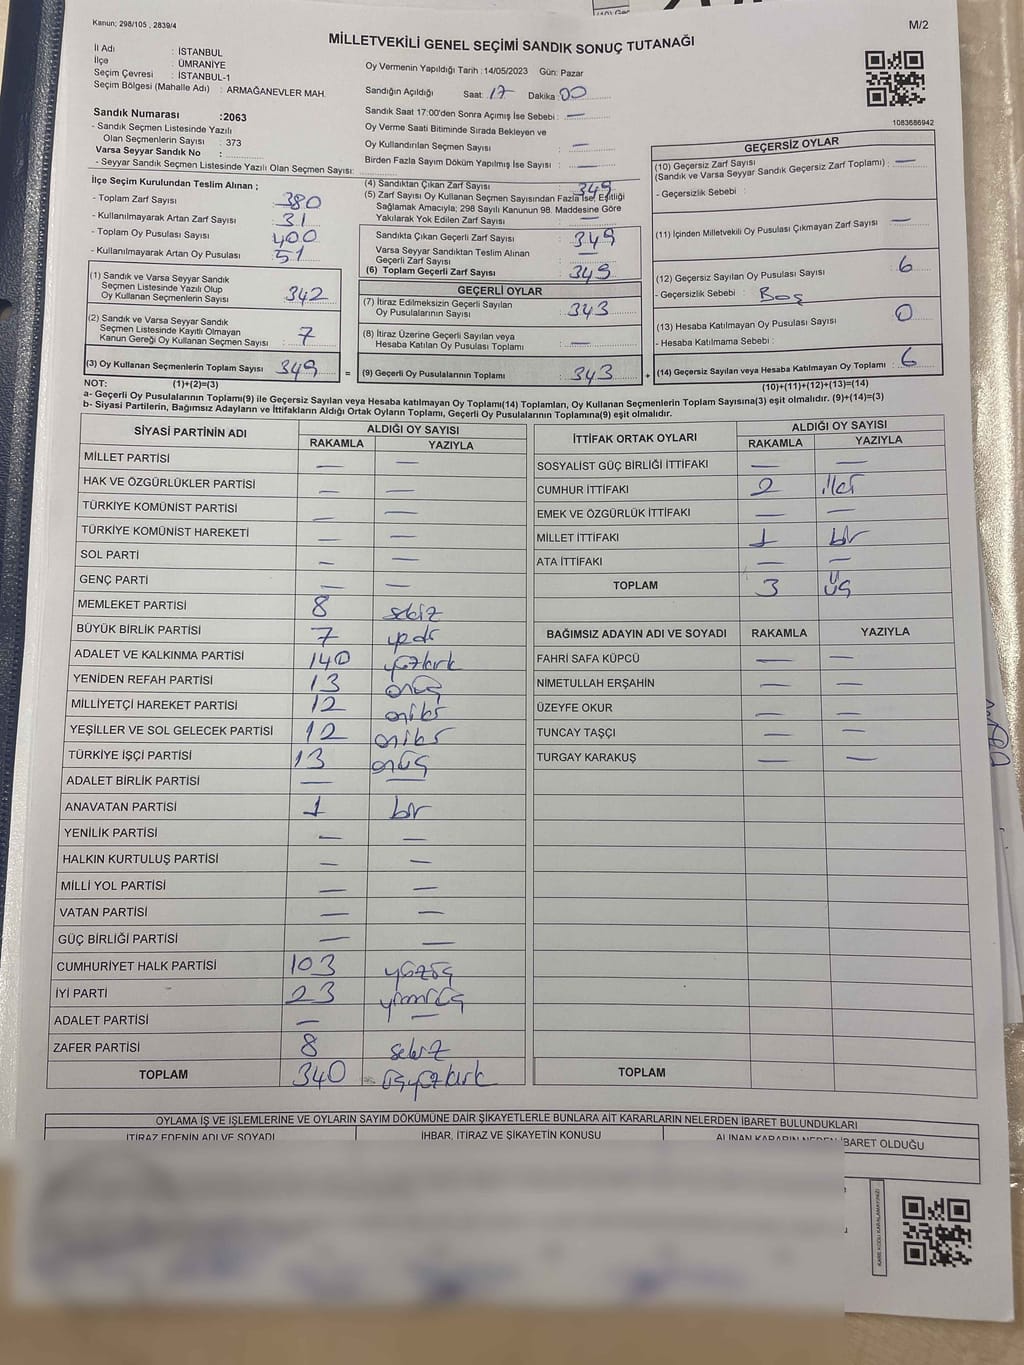 Kanun; 298/105 , 2839/4
M/2
MİLLETVEKİLİ GENEL SEÇİMİ SANDIK SONUÇ TUTANAĞI
İl Adı : İSTANBUL
İlçe : ÜMRANİYE
Seçim Çevresi : İSTANBUL-1
Seçim Bölgesi (Mahalle Adı) : ARMAĞANEVLER MAH.
Oy Vermenin Yapıldığı Tarih : 14/05/2023 Gün: Pazar
Sandığın Açıldığı Saat: 17 Dakika: 00
Sandık Saat 17:00'den Sonra Açımış İse Sebebi : —
Oy Verme Saati Bitiminde Sırada Bekleyen ve
Oy Kullandırılan Seçmen Sayısı : —
Birden Fazla Sayım Döküm Yapılmış İse Sayısı : —
1083686942
Sandık Numarası :2063
- Sandık Seçmen Listesinde Yazılı
Olan Seçmenlerin Sayısı : 373
Varsa Seyyar Sandık No :
- Seyyar Sandık Seçmen Listesinde Yazılı Olan Seçmen Sayısı:
İlçe Seçim Kurulundan Teslim Alınan ;
- Toplam Zarf Sayısı : 380
- Kullanılmayarak Artan Zarf Sayısı : 31
- Toplam Oy Pusulası Sayısı : 400
- Kullanılmayarak Artan Oy Pusulası : 51
(1) Sandık ve Varsa Seyyar Sandık
Seçmen Listesinde Yazılı Olup
Oy Kullanan Seçmenlerin Sayısı : 342
(2) Sandık ve Varsa Seyyar Sandık
Seçmen Listesinde Kayıtlı Olmayan
Kanun Gereği Oy Kullanan Seçmen Sayısı : 7
(3) Oy Kullanan Seçmenlerin Toplam Sayısı : 349
(4) Sandıktan Çıkan Zarf Sayısı : 349
(5) Zarf Sayısı Oy Kullanan Seçmen Sayısından Fazla İse, Eşitliği
Sağlamak Amacıyla; 298 Sayılı Kanunun 98. Maddesine Göre
Yakılarak Yok Edilen Zarf Sayısı : —
Sandıkta Çıkan Geçerli Zarf Sayısı : 349
Varsa Seyyar Sandıktan Teslim Alınan
Geçerli Zarf Sayısı : —
(6) Toplam Geçerli Zarf Sayısı : 349
=
GEÇERLİ OYLAR
(7) İtiraz Edilmeksizin Geçerli Sayılan
Oy Pusulalarının Sayısı : 343
(8) İtiraz Üzerine Geçerli Sayılan veya
Hesaba Katılan Oy Pusulası Toplamı : —
(9) Geçerli Oy Pusulalarının Toplamı : 343
+
GEÇERSİZ OYLAR
(10) Geçersiz Zarf Sayısı
(Sandık ve Varsa Seyyar Sandık Geçersiz Zarf Toplamı) : —
- Geçersizlik Sebebi :
(11) İçinden Milletvekili Oy Pusulası Çıkmayan Zarf Sayısı : —
(12) Geçersiz Sayılan Oy Pusulası Sayısı : 6
- Geçersizlik Sebebi : Boş
(13) Hesaba Katılmayan Oy Pusulası Sayısı : 0
- Hesaba Katılmama Sebebi :
(14) Geçersiz Sayılan veya Hesaba Katılmayan Oy Toplamı : 6
NOT: (1)+(2)=(3)
(10)+(11)+(12)+(13)=(14)
a- Geçerli Oy Pusulalarının Toplamı(9) ile Geçersiz Sayılan veya Hesaba katılmayan Oy Toplamı(14) Toplamları, Oy Kullanan Seçmenlerin Toplam Sayısına(3) eşit olmalıdır. (9)+(14)=(3)
b- Siyasi Partilerin, Bağımsız Adayların ve İttifakların Aldığı Ortak Oyların Toplamı, Geçerli Oy Pusulalarının Toplamına(9) eşit olmalıdır.
SİYASİ PARTİNİN ADI ALDIĞI OY SAYISI
RAKAMLA YAZIYLA
MİLLET PARTİSİ — —
HAK VE ÖZGÜRLÜKLER PARTİSİ — —
TÜRKİYE KOMÜNİST PARTİSİ — —
TÜRKİYE KOMÜNİST HAREKETİ — —
SOL PARTİ — —
GENÇ PARTİ — —
MEMLEKET PARTİSİ 8 sekiz
BÜYÜK BİRLİK PARTİSİ 7 yedi
ADALET VE KALKINMA PARTİSİ 140 yüzkırk
YENİDEN REFAH PARTİSİ 13 onüç
MİLLİYETÇİ HAREKET PARTİSİ 12 oniki
YEŞİLLER VE SOL GELECEK PARTİSİ 12 oniki
TÜRKİYE İŞÇİ PARTİSİ 13 onüç
ADALET BİRLİK PARTİSİ — —
ANAVATAN PARTİSİ 1 bir
YENİLİK PARTİSİ — —
HALKIN KURTULUŞ PARTİSİ — —
MİLLİ YOL PARTİSİ — —
VATAN PARTİSİ — —
GÜÇ BİRLİĞİ PARTİSİ — —
CUMHURİYET HALK PARTİSİ 103 yüzüç
İYİ PARTİ 23 yirmiüç
ADALET PARTİSİ — —
ZAFER PARTİSİ 8 sekiz
TOPLAM 340 üçyüzkırk
İTTİFAK ORTAK OYLARI ALDIĞI OY SAYISI
RAKAMLA YAZIYLA
SOSYALİST GÜÇ BİRLİĞİ İTTİFAKI — —
CUMHUR İTTİFAKI 2 iki
EMEK VE ÖZGÜRLÜK İTTİFAKI — —
MİLLET İTTİFAKI 1 bir
ATA İTTİFAKI — —
TOPLAM 3 üç
BAĞIMSIZ ADAYIN ADI VE SOYADI RAKAMLA YAZIYLA
FAHRİ SAFA KÜPCÜ — —
NİMETULLAH ERŞAHİN — —
ÜZEYFE OKUR — —
TUNCAY TAŞÇI — —
TURGAY KARAKUŞ — —
TOPLAM
OYLAMA İŞ VE İŞLEMLERİNE VE OYLARIN SAYIM DÖKÜMÜNE DAİR ŞİKAYETLERLE BUNLARA AİT KARARLARIN NELERDEN İBARET BULUNDUKLARI
İTİRAZ EDENİN ADI VE SOYADI İHBAR, İTİRAZ VE ŞİKAYETİN KONUSU ALINAN KARARIN NEDEN İBARET OLDUĞU
KARE KODU KARALAMAYINIZ!